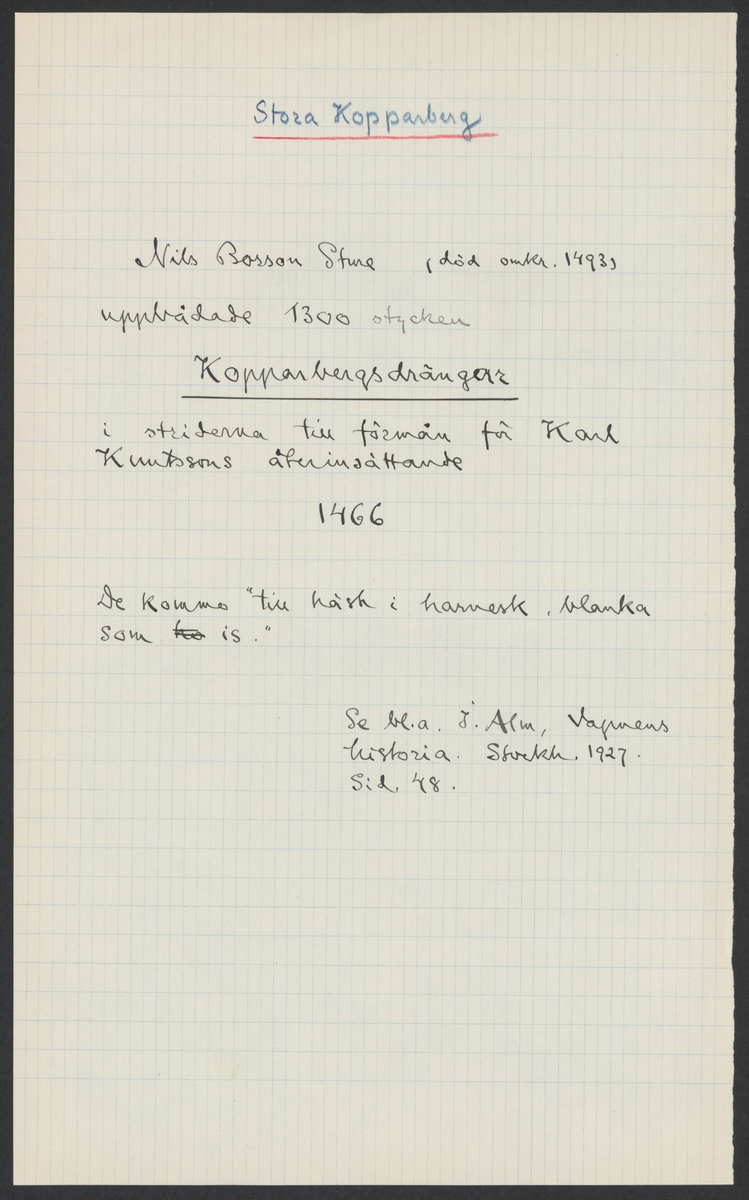 Stora Kopparberg
Nils Bosson Sture (död omkr. 1493)
uppbådade 1300 stycken
Kopparbergsdrängar
i striderna till förmån för Karl
Knutssons återinsättande
1466
De kommo "till häst i harnesk, blanka
som is."
Se bl.a. J. Alm, Vapnens
historia. Stockh. 1927.
Sid. 48.